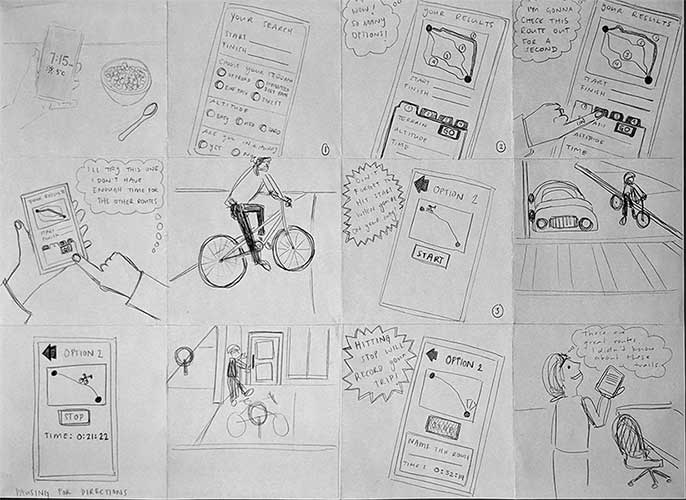 7:15
YOUR SEARCH
START
FINISH
CHOOSE YOUR
OFFROAD
DESIGNATED
BIKE PATH
BIKE PATH
STREET
ALTITUDE
EASY
MED
HARD
ARE YOU IN A HURRY?
YES
NO
1
WOW!
SO MANY
OPTIONS!
YOUR RESULTS
START
FINISH
1 2 3 4
GO
TERRAIN
ALTITUDE
TIME
2
I'M GONNA
CHECK THIS
ROUTE OUT
FOR A
SECOND
YOUR RESULTS
START
FINISH
GO
ALTITUDE
TIME
YOUR RESULTS
START
FINISH
I'LL TRY THIS ONE
I DON'T HAVE
ENOUGH TIME FOR
THE OTHER ROUTES
DON'T
FORGET
HIT START
WHEN YOU'RE
ON YOUR WAY
OPTION 2
START
3
OPTION 2
STOP
TIME: 0:21:22
PAUSING FOR DIRECTIONS
HITTING
STOP WILL
RECORD YOUR
TRIP!
OPTION 2
NAME THIS ROUTE
TIME:
These are
great routes,
I didn't know
about these
trails